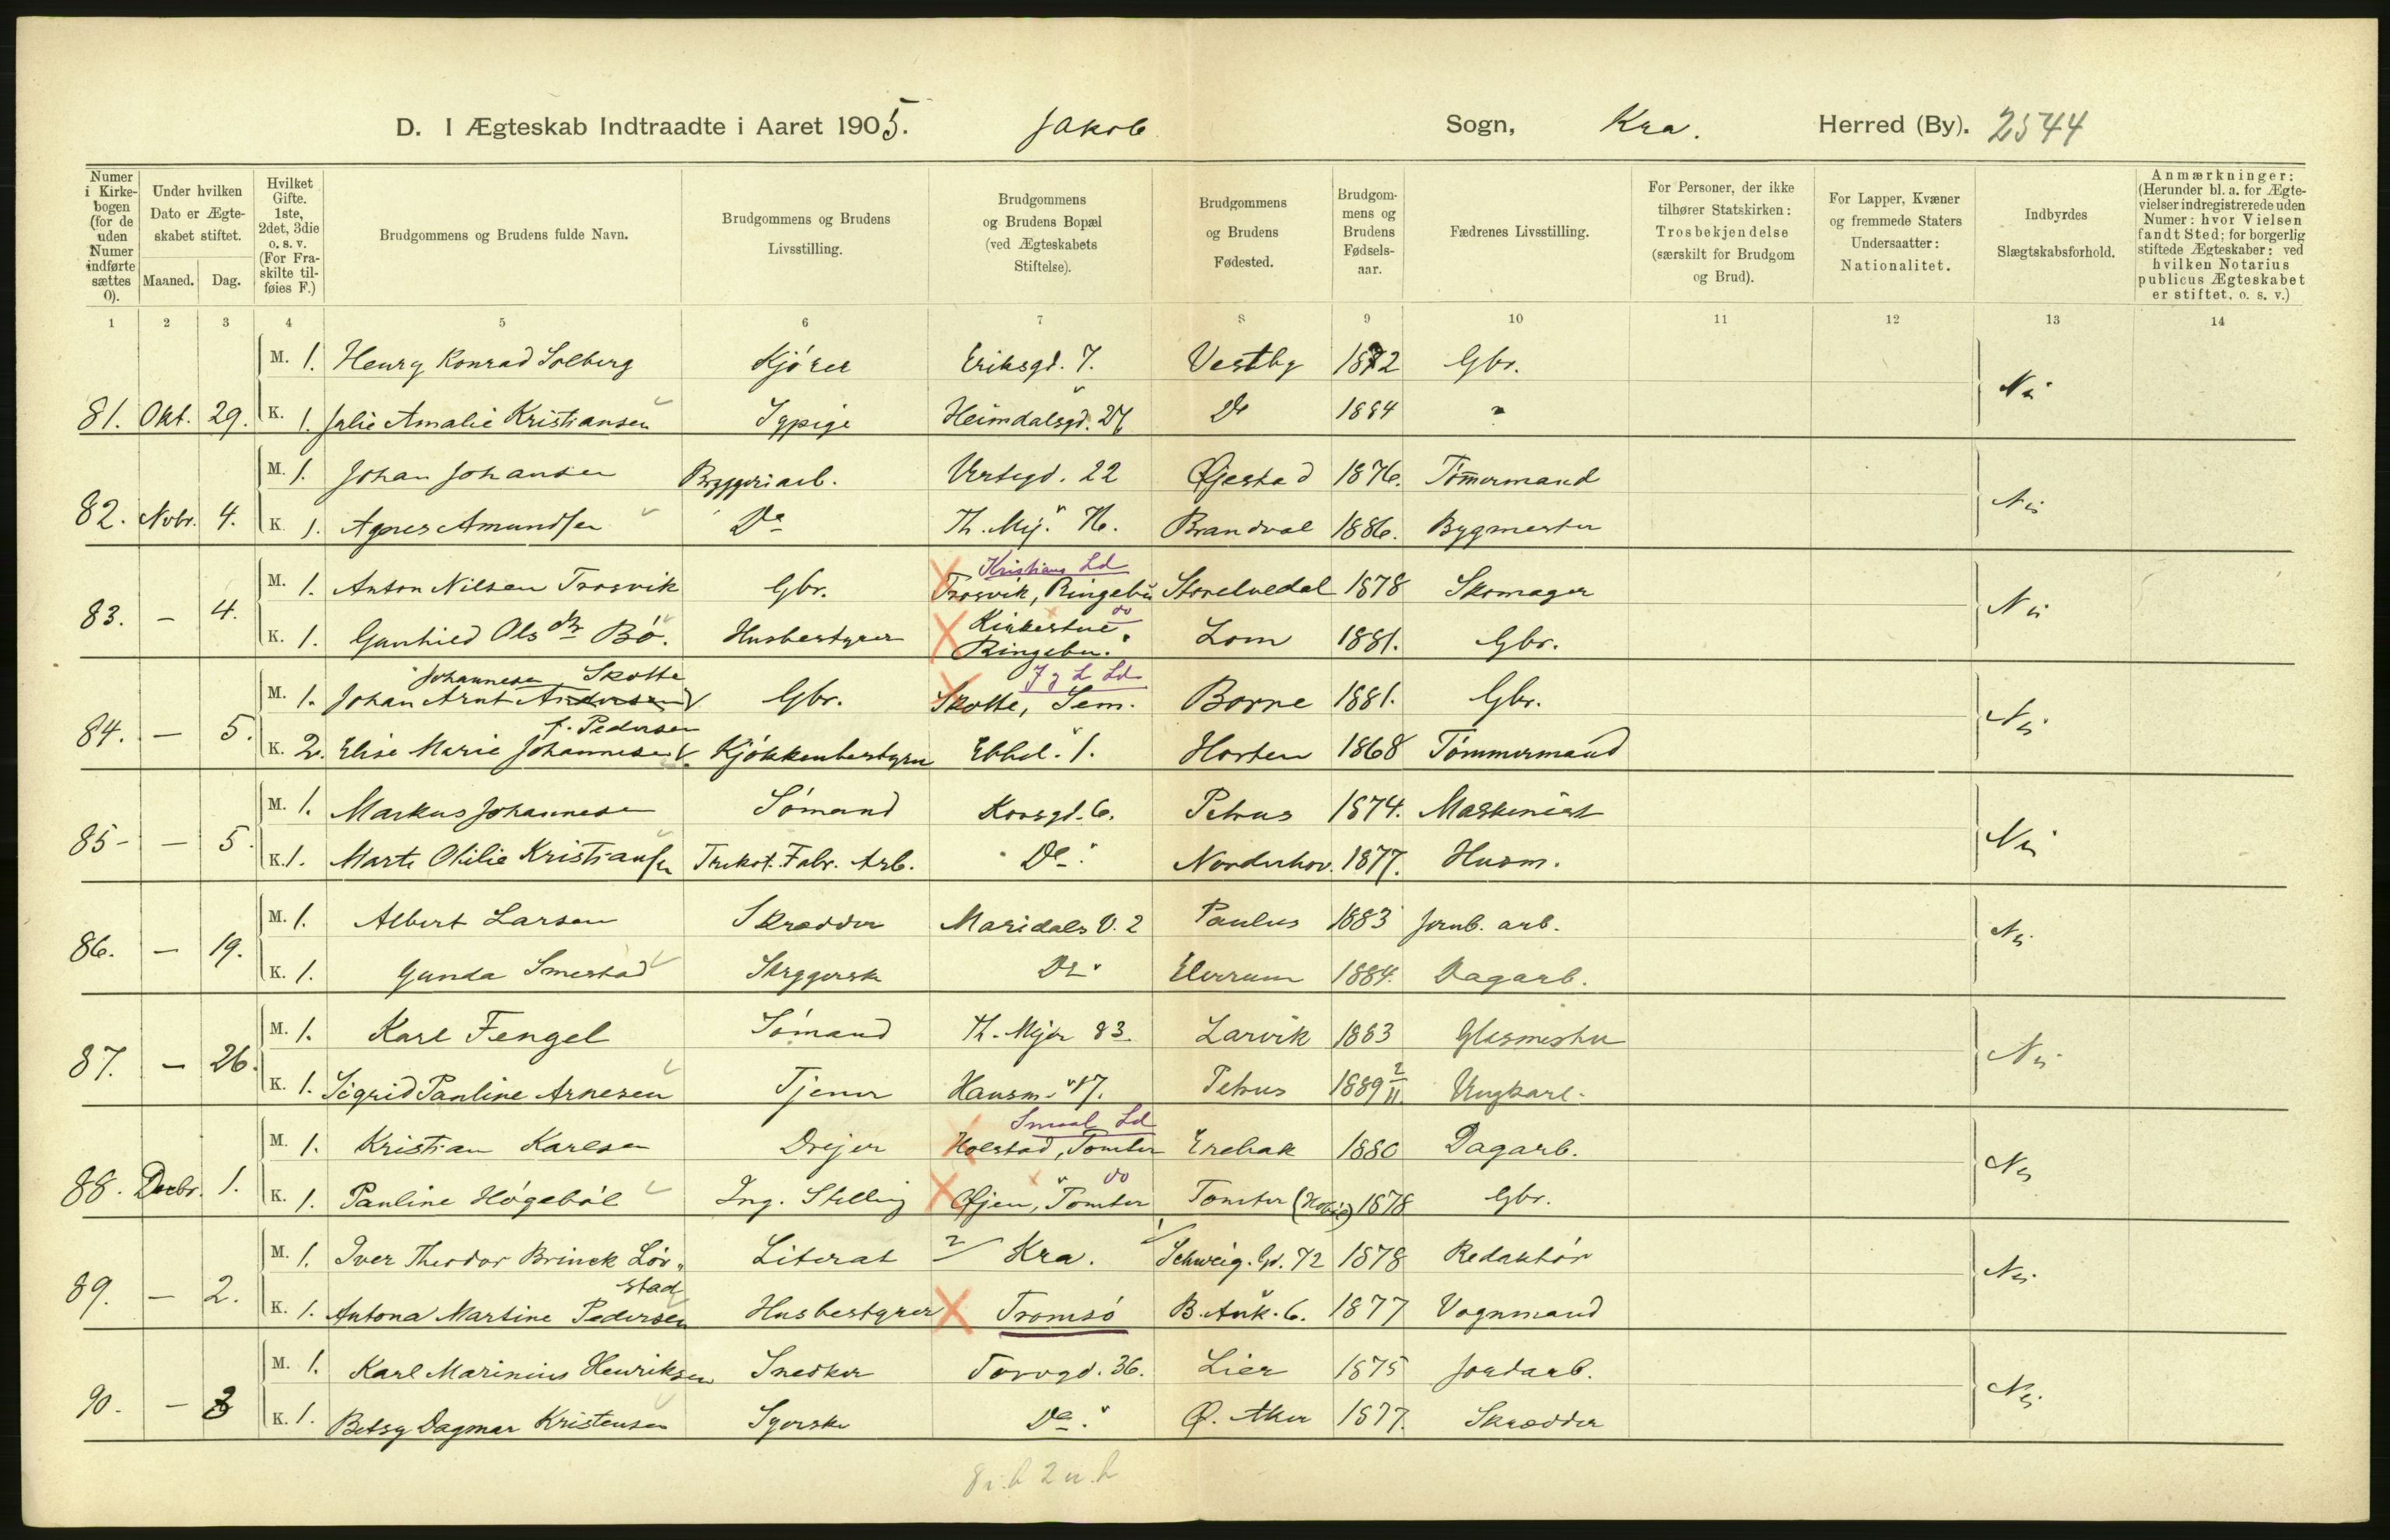 D. I Ægteskab Indtraadte i Aaret 1905. Jakob Sogn, Kra. Herred (By). 2544
Numer i Kirkebogen (for de uden Numer indførte sættes 0).
Under hvilken Dato er Ægteskabet stiftet.
Maaned. Dag.
Hvilket Gifte. 1ste, 2det, 3die o. s. v. (For Fraskilte tilføies F.)
Brudgommens og Brudens fulde Navn.
Brudgommens og Brudens Livsstilling.
Brudgommens og Brudens Bopæl (ved Ægteskabets Stiftelse).
Brudgommens og Brudens Fødested.
Brudgommens og Brudens Fødselsaar.
Fædrenes Livsstilling.
For Personer, der ikke tilhører Statskirken: Trosbekjendelse (særskilt for Brudgom og Brud).
For Lapper, Kvæner og fremmede Staters Undersaatter: Nationalitet.
Indbyrdes Slægtskabsforhold.
Anmærkninger: (Herunder bl. a. for Ægtevielser indregistrerede uden Numer: hvor Vielsen fandt Sted; for borgerlig stiftede Ægteskaber: ved hvilken Notarius publicus Ægteskabet er stiftet, o. s. v.)
1 2 3 4 5 6 7 8 9 10 11 12 13 14
M. 1. Henry Konrad Solberg Kjórer Eriksgd. 7. Vestby 1872 Gbr. Nei
81. Okt. 29. K. 1. Julie Amalie Kristiansen Sypige Heimdalsgd. Do 1884 "
M. 1. Johan Johansen Bryggeriarb. Vertsgd. 22 Øjestad 1876. Tömermand Nei
82. Novbr. 4. K. 1. Agnes Amundsen Do Th. Mej. 76. Brandval 1886. Bygmester
Kristians Ld
M. 1. Anton Nilsen Trosvik Gbr. Trosvik, Ringebu Storelvedal 1878 Skomager Nei
83. — 4. K. 1. Gunhild Ols dtr Bö. Husbestyrer Kirkestue do Ringebu. Lom 1881. Gbr.
Johannesen Skotte J & L Ld
M. 1. Johan Arnt Andersen Gbr. Skotte, Sem. Borre 1881. Gbr. Nei
f. Pedersen
84. — 5. K. 2. Elise Marie Johannesen Kjökkenbestyrer Ebbel. 1. Horten 1868 Tómmermand
M. 1. Markus Johannesen Sómand Korsgd. 6. Petrus 1874. Maskinist Nei
85- — 5. K. 1. Marte Otilie Kristiansen Trikot. Fabr. Arb. Do Norderhov. 1877. Husm.
M. 1. Albert Larsen Skrædder Maridals V. 2 Paulus 1883 Jernb. arb. Nei
86. — 19. K. 1. Gunda Smestad Skyggerske Do Elverum 1884. Dagarb.
M. 1. Karl Fengel Sómand Th. Mejer 83. Larvik 1883 Glasmester Nei
87. — 26. K. 1. Sigrid Pauline Arnesen Tjener Hausm. 17. Petrus 1889 2/11 Ungkarl.
Smaal. Ld
M. 1. Kristian Karlsen Drejer Holstad, Tomter Enebak 1880 Dagarb. Nei
88. Decbr. 1. K. 1. Pauline Högeböl Ing. Stilling Øjen, Tomter do Tomter (Hobøl) 1878 Gbr.
M. 1. Iver Theodor Brinck Löv„ Literat 2/ Kra. Schweig. Gd. 72 1878 Redaktór Nei
stad
89. — 2. K. 1. Antona Martine Pedersen Husbestyrer Tromsó B. Ank. 6. 1877 Vognmand
M. 1. Karl Marinius Henriksen Snedker Torvgd. 36. Lier 1875 Jordarb. Nei
90. — 3 K. 1. Betsy Dagmar Kristensen Syerske Do Ø. Aker 1877. Skrædder
8 i. b 2 u. b